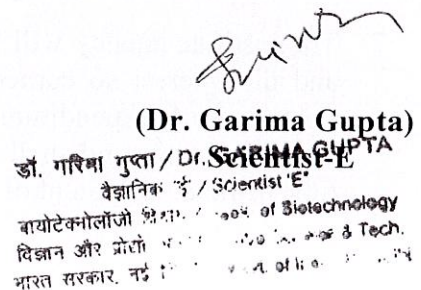 (Dr. Garima Gupta)
Scientist-E
डॉ. गरिमा गुप्ता / Dr. GARIMA GUPTA
वैज्ञानिक 'ई' / Scientist 'E'
बायोटेक्नोलॉजी of Biotechnology
विज्ञान और & Tech.
भारत सरकार, नई